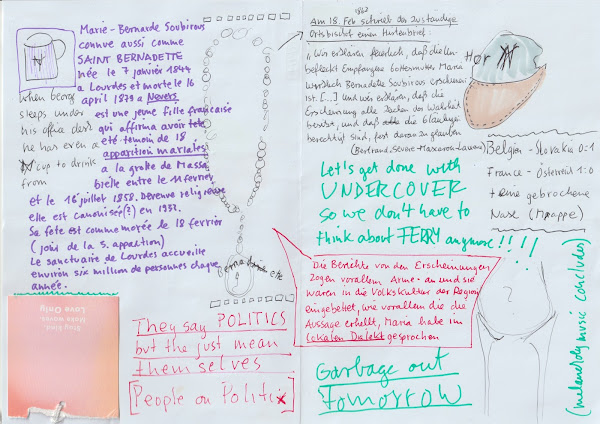 Marie-Bernarde Soubirous
connue aussi comme
SAINT BERNADETTE
née le 7 janvier 1844
a Lourdes et morte le 16
april 1879 a Nevers
est une jeune fille française
qui affirma avoir été
été temoin de 18
apparition mariales
a la grotte de Massa
bielle entre le 11 fevrier
et le 16 juillet 1858. Devenue religieuse
elle est canonisée(?) en 1933.
Sa fete est commemorée le 18 fevrier
(jour de la 3. apparition)
Le sanctuaire de Lourdes accueille
environ six million de personnes chaque
année.
when
steps under
his office desk
he has even a
cup to drink
from
Stay kind.
Make waves.
Love Only
Bernadette
They say POLITICS
but the just mean
themselves
[People on Politix]
1862
Am 18. Feb schrieb der zuständige
Ortsbischof einen Hirtenbrief:
"Wir erklären feierlich, daß die Unbe-
fleckt Empfangene Gottesmutter Maria
wirklich Bernadette Soubirous erschienen
ist. [...] und wir erklären, daß die
Erscheinung alle Zeichen der Wahrheit
besitzt, und daß die Gläubigen
berechtigt sind, fest daran zu glauben
(Bertrand-Sévère-Mascarou-Laurence)
Let's get done with
UNDERCOVER
so we don't have to
think about FERRY anymore!!!!
Hør
Belgien - Slovakia 0:1
France - Österreich 1:0
+ eine gebrochene
Nase (Mbappe)
Die Berichte von den Erscheinungen
zogen vorallem Arme an und sie
waren in die Volkskultur der Region
eingebettet, wie vorallem die die
Aussage erhellt, Maria habe im
lokalen Dialekt gesprochen
Garbage out
tomorrow
?
(melancholy music concludes)